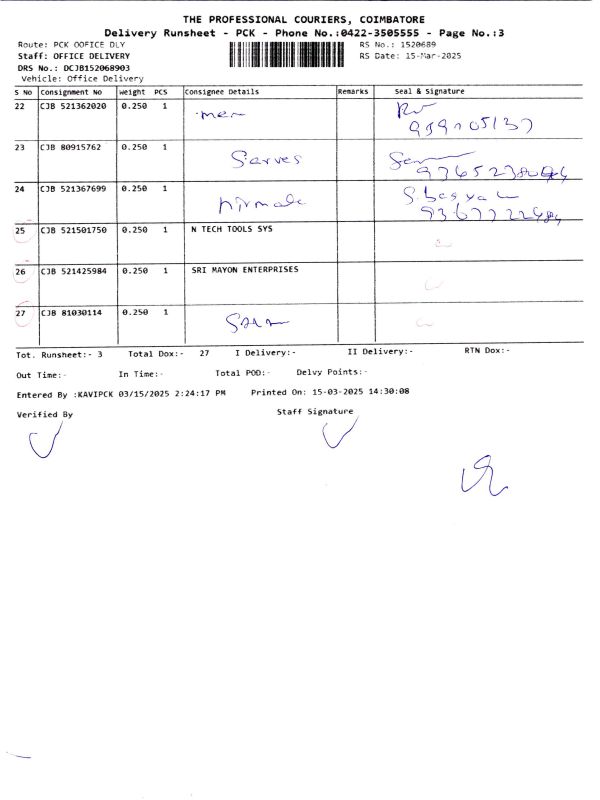 THE PROFESSIONAL COURIERS, COIMBATORE
Delivery Runsheet - PCK - Phone No.:0422-3505555 - Page No.:3
Route: PCK OOFICE DLY
RS No.: 1520689
Staff: OFFICE DELIVERY
RS Date: 15-Mar-2025
DRS No.: DCJB152068903
Vehicle: Office Delivery
S No Consignment No Weight PCS Consignee Details Remarks Seal & Signature
22 CJB 521362020 0.250 1
23 CJB 80915762 0.250 1 Sarves
24 CJB 521367699 0.250 1 nirmala
25 CJB 521501750 0.250 1 N TECH TOOLS SYS
26 CJB 521425984 0.250 1 SRI MAYON ENTERPRISES
27 CJB 81030114 0.250 1
Tot. Runsheet:- 3 Total Dox:- 27 I Delivery:- II Delivery:- RTN Dox:-
Out Time:- In Time:- Total POD:- Delvy Points:-
Entered By :KAVIPCK 03/15/2025 2:24:17 PM Printed On: 15-03-2025 14:30:08
Verified By Staff Signature